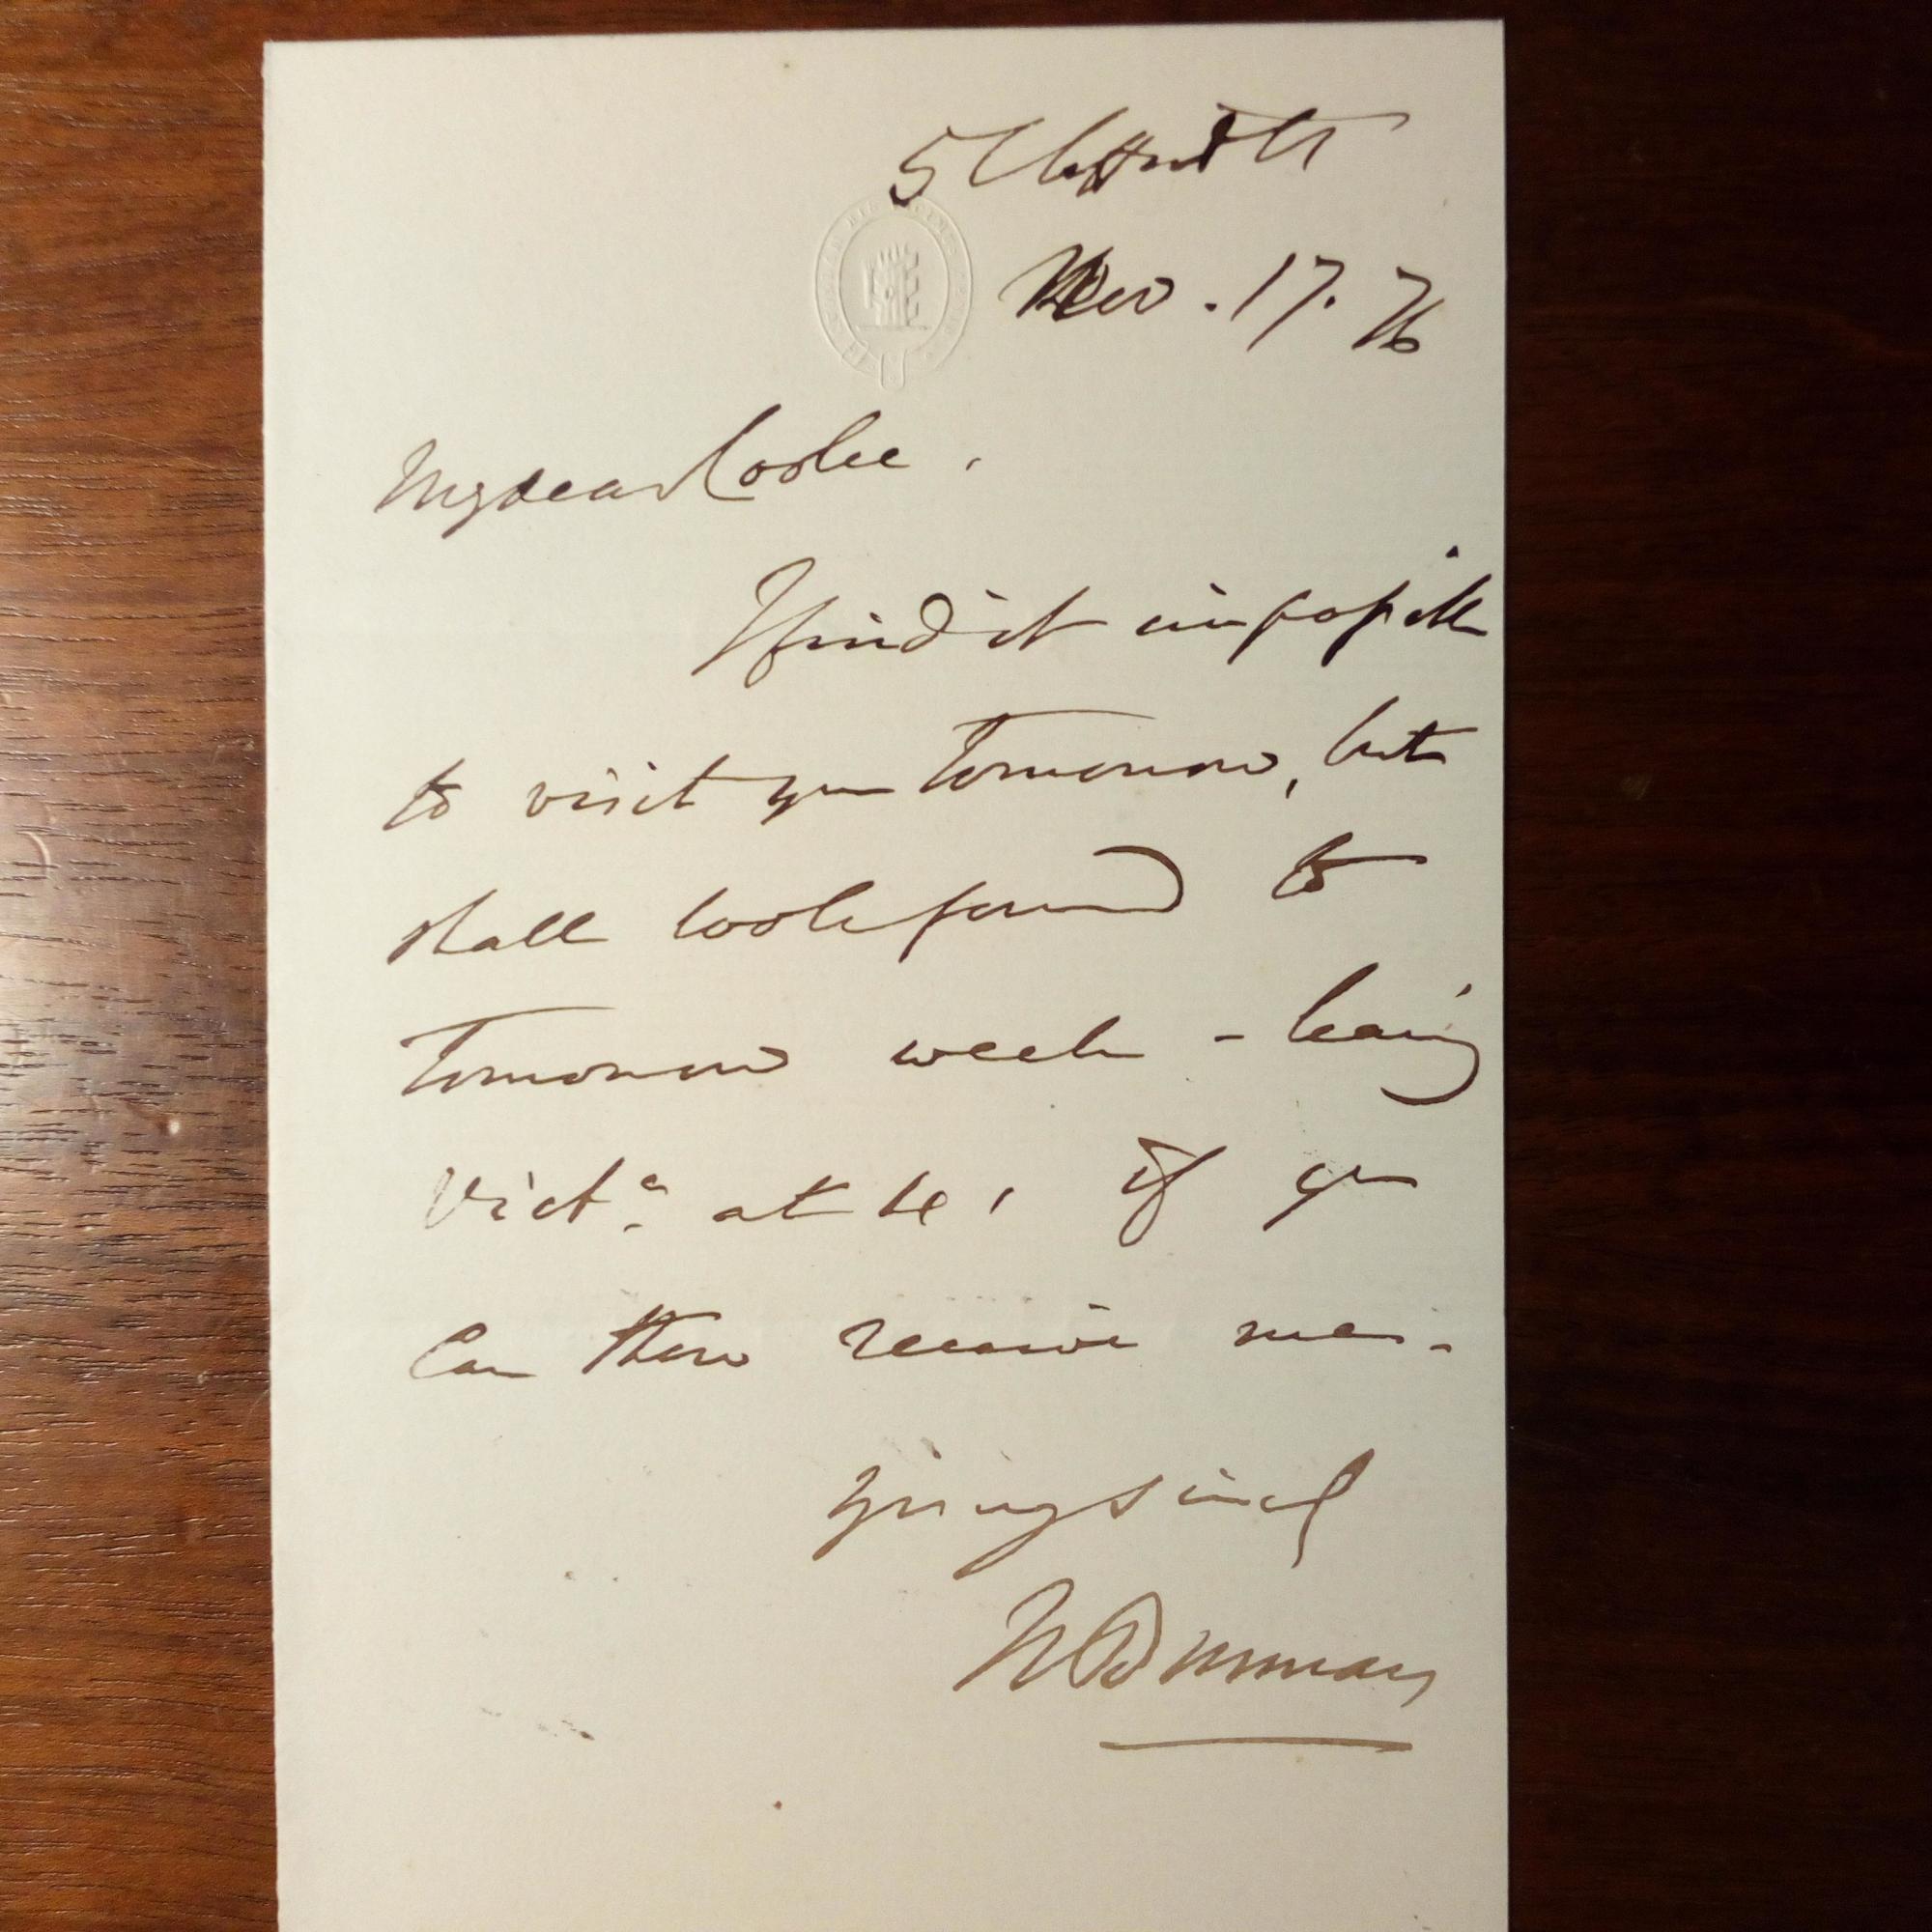 5 Clifford St
Nov. 17. 76
My dear Cooke.
I find it impossible
to visit you Tomorrow, but
shall look forward to
Tomorrow week - leaving
Vict.a at 12, if you
can then receive me.